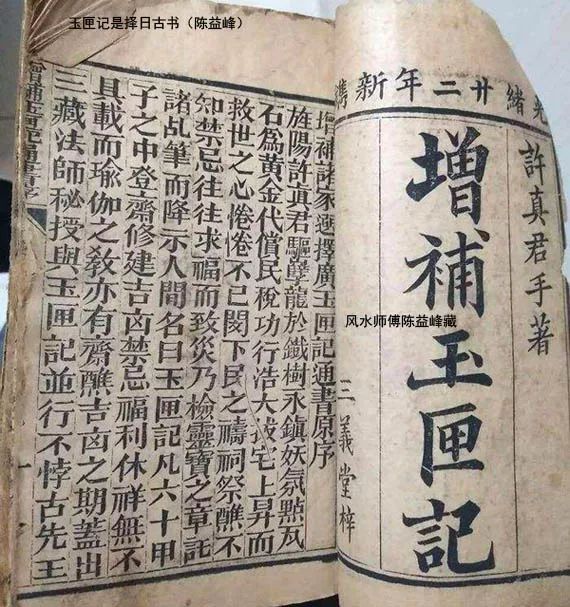 玉匣记是择日古书（陈益峰）
光緒廿二年新鐫
許真君手著
增補玉匣記
三義堂梓
风水师傅陈益峰藏
增補諸家選擇廣玉匣記通書原序
旌陽許真君驅孽龍於鐵樹永鎮妖氛點瓦
石爲黃金代償民稅功行浩大拔宅上昇而
救世之心惓惓不已閔下民之禱祠祭醮不
知禁忌往往求福而致災乃檢靈寶之章託
諸乩筆而降示人間名曰玉匣記凡六十甲
子之中登齋修建吉凶禁忌福利休祥無不
具載而瑜伽之教亦有齋醮吉凶之期蓋出
三藏法師秘授與玉匣記並行不悖古先王